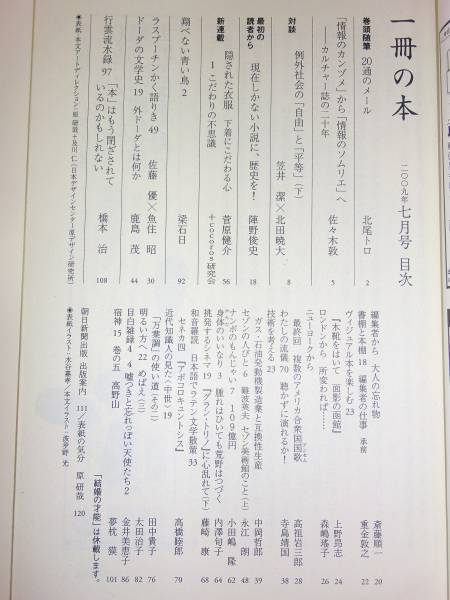 一冊の本
二〇〇九年 七月号 目次
巻頭随筆 20通のメール 北尾トロ 2
「情報のカンヅメ」から「情報のソムリエ」へ
――カルチャー誌の二十年 佐々木敦 5
対談 例外社会の「自由」と「平等」(下)
笠井 潔×北田暁大 8
最初の読者から 現在しかない小説に、歴史を! 陣野俊史 18
新連載 隠された衣服 下着にこだわる心
1 こだわりの不思議 菅原健介+cocoros研究会 56
翔べない青い鳥 2 梁石日 92
ラスプーチンかく語りき 49 佐藤 優×魚住 昭 30
ドーダの文学史 19 外ドーダとは何か 鹿島 茂 44
行雲流水録 97 「本」はもう閉ざされているのかもしれない 橋本 治 108
◉表紙・本文アートディレクション・原 研哉+及川 仁(日本デザインセンター原デザイン研究所)
編集者から 大人の忘れ物 斎藤順一 20
書棚と本棚 18 編集者の仕事 承前 重金敦之 22
ヴィジュアル本を楽しむ 23
『木靴をはいて―面影の函館』 上野昂志 24
ロンドンから 所変われば…… 森嶋瑤子 26
ニューヨークから
最終回 複数のアメリカ合衆国国歌 高祖岩三郎 28
わたしの流儀 70 聴かずに演れるか! 寺島靖国 38
技術を考える 23
ガス・石油発動機製造業と互換性生産 中岡哲郎 39
セゾンの人びと 6 難波英夫 セゾン美術館のこと(上) 永江 朗 48
ナンボのもんじゃい 7 109億円 小田嶋 隆 62
身体のいいなり 3 腫れはひいても荒野はつづく 内澤旬子 64
挑発するシネマ 19 『グラン・トリノ』に心乱れて(下) 藤崎 康 68
和音羅読 日本語でラテン文学散策 33
セネカ四 『アポコロキュントシス』 高橋睦郎 70
近代知識人の見た〈中世〉 19
「万葉調」の使い道(その二) 田中貴子 76
明るい方へ 22 めばえ(三) 太田治子 82
目白雑録4 4 嘘つきと忘れっぽい天使たち2 金井美恵子 86
宿神 15 巻の五 高野山 夢枕 獏 101
「結婚の才能」は休載します。
朝日新聞出版 出版案内 111/表紙の気分 原 研哉 120
◉表紙イラスト・水谷嘉孝/本文イラスト・波夢野 光